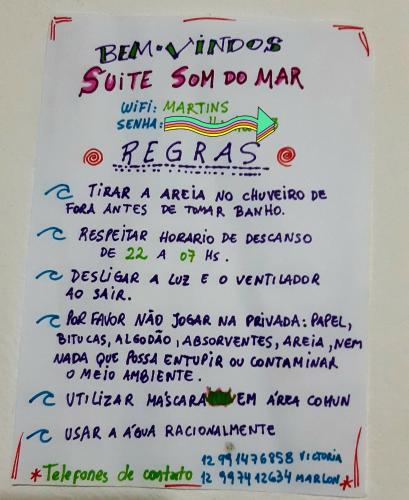 BEM-VINDOS
SUITE SOM DO MAR
WIFI: MARTINS
SENHA:
REGRAS
TIRAR A AREIA NO CHUVEIRO DE
FORA ANTES DE TOMAR BANHO.
RESPEITAR HORARIO DE DESCANSO
DE 22 A 07 HS.
DESLIGAR A LUZ E O VENTILADOR
AO SAIR.
POR FAVOR NÃO JOGAR NA PRIVADA: PAPEL,
BITUCAS, ALGODÃO, ABSORVENTES, AREIA, NEM
NADA QUE POSSA ENTUPIR OU CONTAMINAR
O MEIO AMBIENTE.
UTILIZAR MÁSCARA EM ÁREA COMUN
USAR A ÁGUA RACIONALMENTE
Telefones de contato 12 991476858 VICTORIA
12 99742634 MARLON